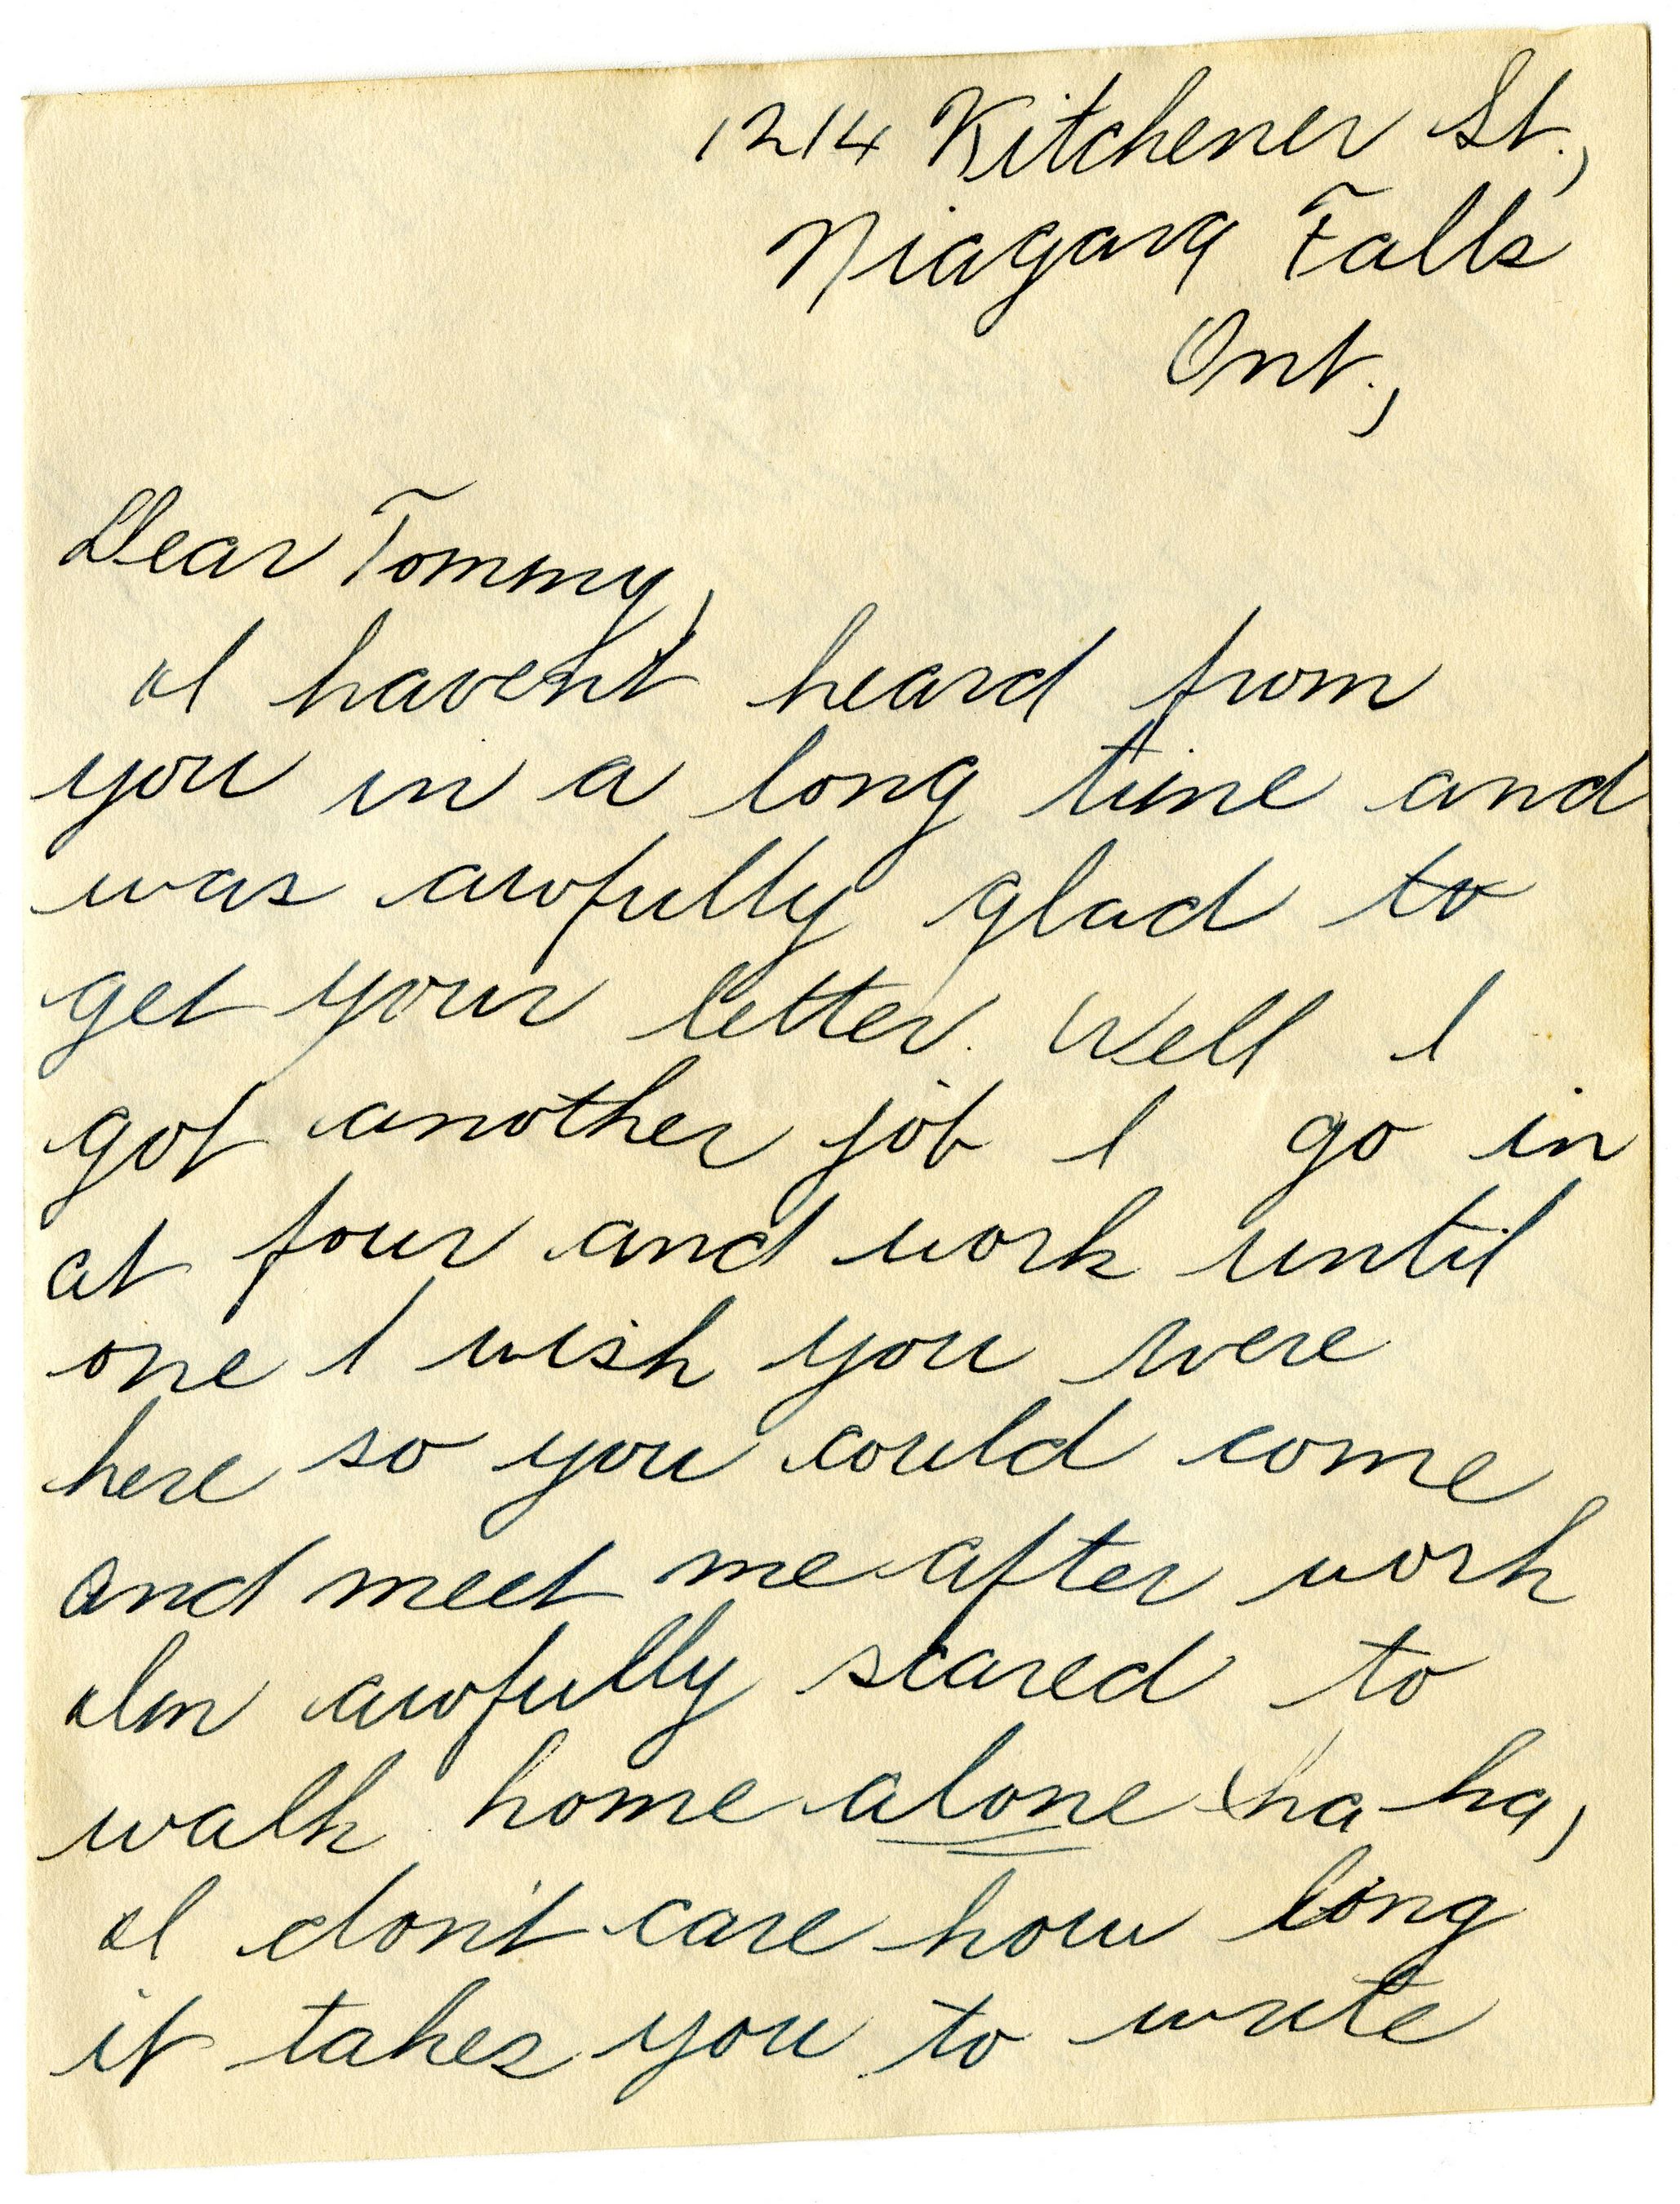 1214 Kitchener St.,
Niagara Falls
Ont.,
Dear Tommy,
I haven't heard from
you in a long time and
was awfully glad to
get your letter. Well I
got another job I go in
at four and work until
one I wish you were
here so you could come
and meet me after work
Im awfully scared to
walk home alone ha-ha,
I don't care how long
it takes you to write